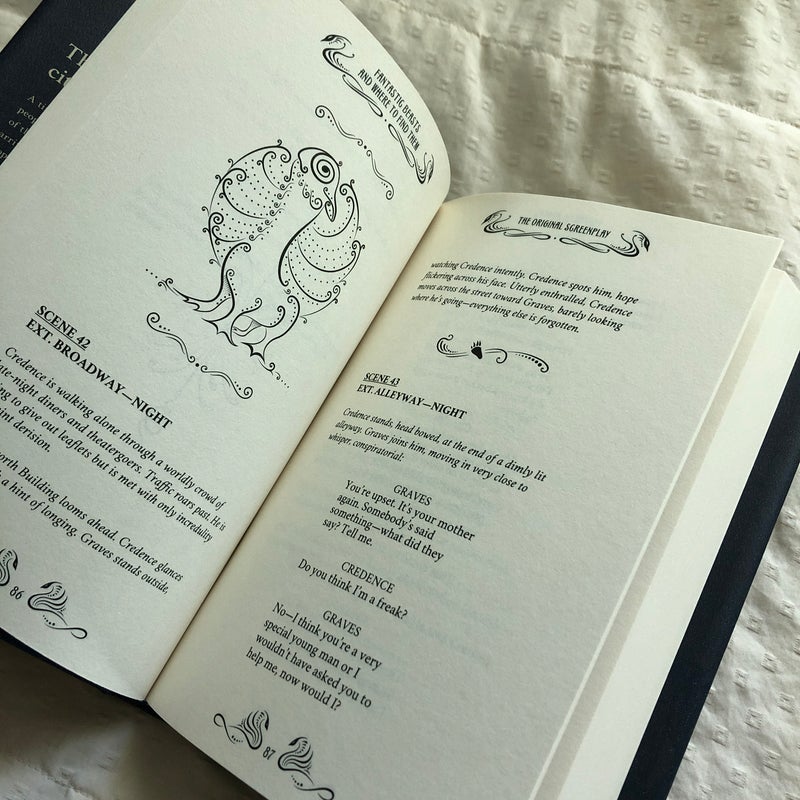 FANTASTIC BEASTS
AND WHERE TO FIND THEM
SCENE 42
EXT. BROADWAY—NIGHT
Credence is walking alone through a worldly crowd of
late-night diners and theatergoers. Traffic roars past. He is
to give out leaflets but is met with only incredulity
derision.
Building looms ahead. Credence glances
a hint of longing. Graves stands outside,
86
THE ORIGINAL SCREENPLAY
watching Credence intently. Credence spots him, hope
flickering across his face. Utterly enthralled, Credence
moves across the street toward Graves, barely looking
where he's going—everything else is forgotten.
SCENE 43
EXT. ALLEYWAY—NIGHT
Credence stands, head bowed, at the end of a dimly lit
alleyway. Graves joins him, moving in very close to
whisper, conspiratorial:
GRAVES
You're upset. It's your mother
again. Somebody's said
something—what did they
say? Tell me.
CREDENCE
Do you think I'm a freak?
GRAVES
No—I think you're a very
special young man or I
wouldn't have asked you to
help me, now would I?
87